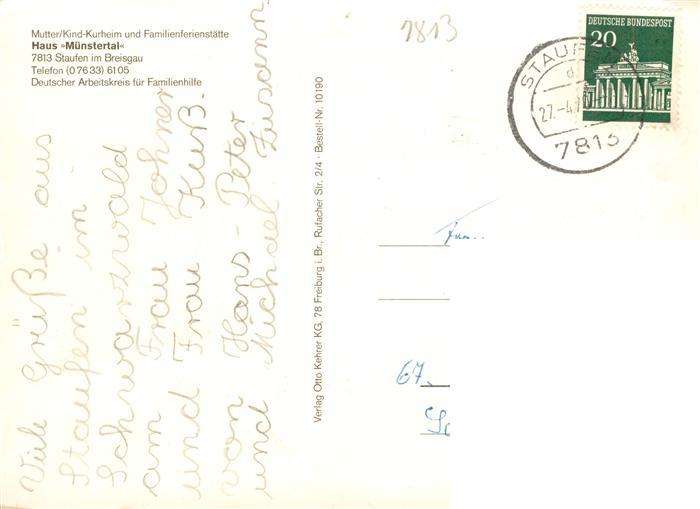 Mutter/Kind-Kurheim und Familienferienstätte
Haus »Münstertal«
7813 Staufen im Breisgau
Telefon (0 76 33) 61 05
Deutscher Arbeitskreis für Familienhilfe
Viele Grüße aus
Staufen im
Schwarzwald
am Frau Johner
und Frau Kuß.
von Hans-Peter
und Michael Zusann
Verlag Otto Kehrer KG, 78 Freiburg i. Br., Rufacher Str. 2/4 · Bestell-Nr. 10190
1813
DEUTSCHE BUNDESPOST
20
STAUFEN
d
27.-4.
7813
Fam.
67